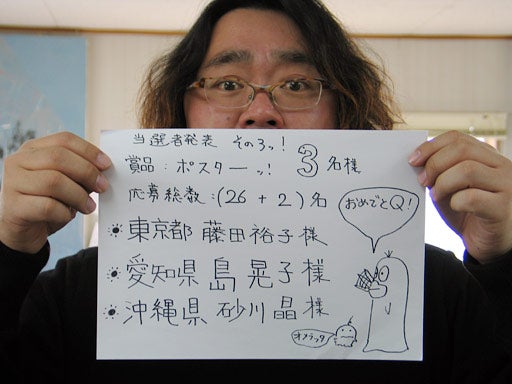 当選者発表 その3ッ!
賞品:ポスターッ! 3名様
応募総数:(26+2)名
おめでとQ!
東京都 藤田裕子様
愛知県 島 晃子様
沖縄県 砂川晶様
オフラッタ